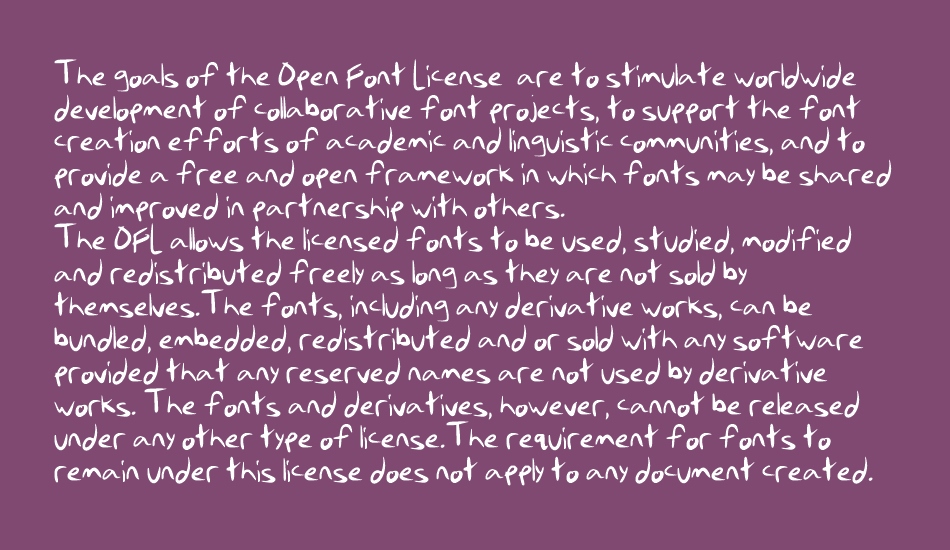 The goals of the Open Font License are to stimulate worldwide
development of collaborative font projects, to support the font
creation efforts of academic and linguistic communities, and to
provide a free and open framework in which fonts may be shared
and improved in partnership with others.
The OFL allows the licensed fonts to be used, studied, modified
and redistributed freely as long as they are not sold by
themselves. The fonts, including any derivative works, can be
bundled, embedded, redistributed and or sold with any software
provided that any reserved names are not used by derivative
works. The fonts and derivatives, however, cannot be released
under any other type of license. The requirement for fonts to
remain under this license does not apply to any document created.